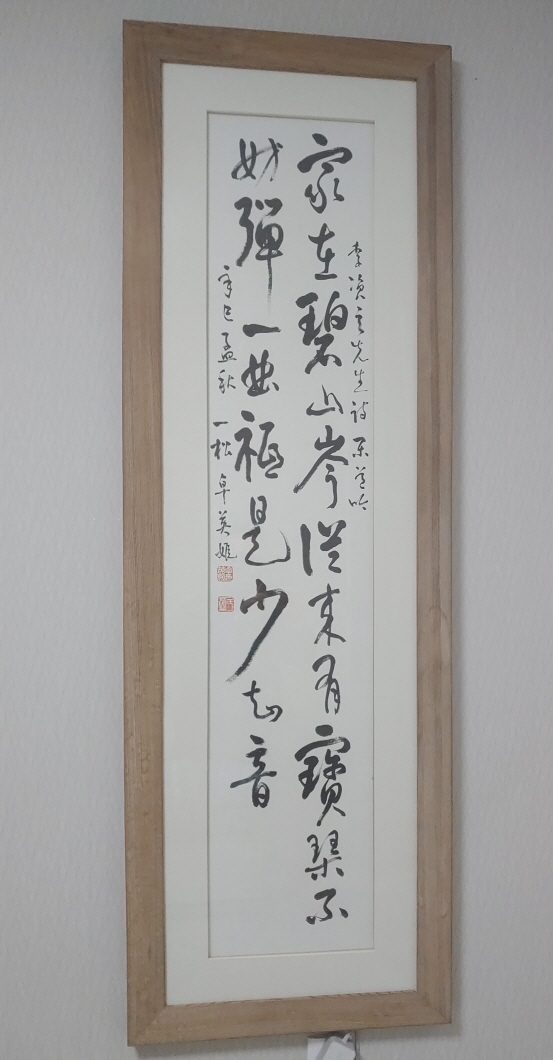 李資玄先生詩 樂道吟
家在碧山岑從來有寶琴不
妨彈一曲祗是少知音
辛巳孟秋 一松 卓英姬